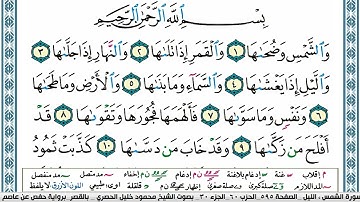 بِسْمِ اللَّهِ الرَّحْمَٰنِ الرَّحِيمِ
وَالشَّمْسِ وَضُحَاهَا ١ وَالْقَمَرِ إِذَا تَلَاهَا ٢ وَالنَّهَارِ إِذَا جَلَّاهَا ٣
وَاللَّيْلِ إِذَا يَغْشَاهَا ٤ وَالسَّمَاءِ وَمَا بَنَاهَا ٥ وَالْأَرْضِ وَمَا طَحَاهَا
٦ وَنَفْسٍ وَمَا سَوَّاهَا ٧ فَأَلْهَمَهَا فُجُورَهَا وَتَقْوَاهَا ٨ قَدْ
أَفْلَحَ مَن زَكَّاهَا ٩ وَقَدْ خَابَ مَن دَسَّاهَا ١٠ كَذَّبَتْ ثَمُودُ
سورة الشمس، الليل | ص ٥٩٥ | الحزب ٦٠ | الجزء ٣٠ | بصوت الشيخ محمود خليل الحصري | بالقصر برواية حفص عن عاصم